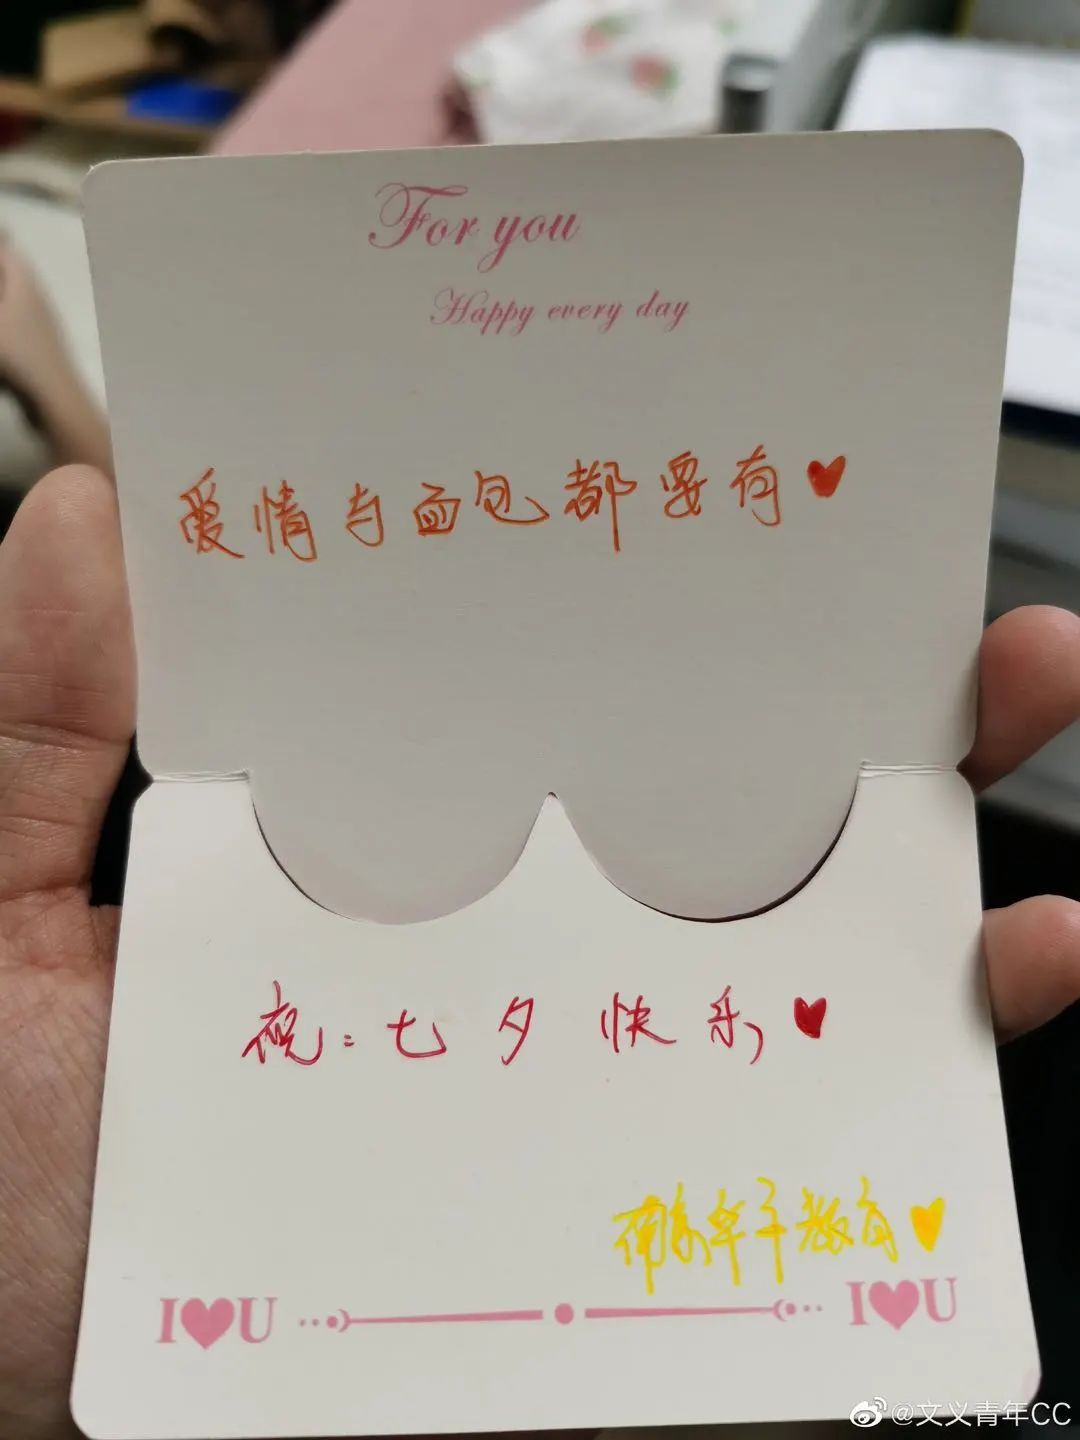 For you
Happy every day
爱情与面包都要有
祝:七夕快乐
教育
I♥U I♥U
@文义青年CC